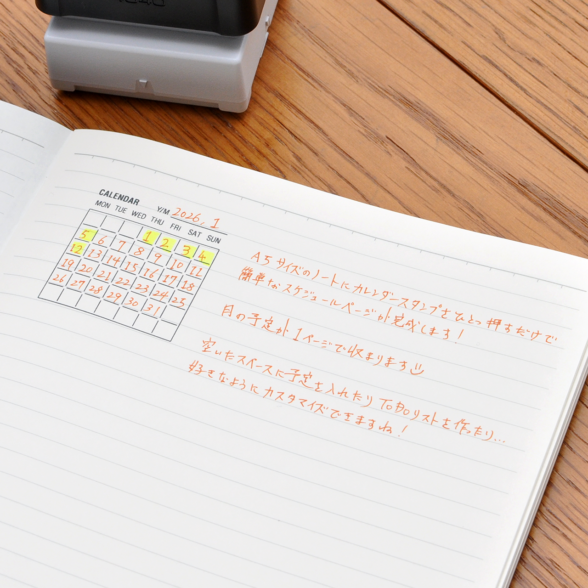 CALENDAR Y/M 2026. 1
MON TUE WED THU FRI SAT SUN
1 2 3 4
5 6 7 8 9 10 11
12 13 14 15 16 17 18
19 20 21 22 23 24 25
26 27 28 29 30 31
A5サイズのノートにカレンダースタンプをひとつ押すだけで
簡単なスケジュールページが完成します!
月の予定が1ページで収まります
空いたスペースに予定を入れたりToDoリストを作ったり...
好きなようにカスタマイズできますね!